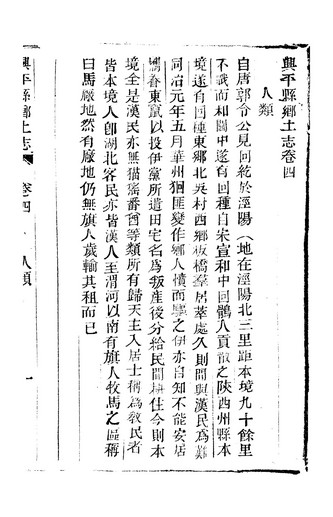 興平縣鄉土志卷四
人類
自唐郭令公見回紇於涇陽（地在涇陽北三里距本境九十餘里
不戰而和關中遂有回種自宋宣和中回鶻入貢散之陝西州縣本
境遂有回種東鄉北吳村西鄉板橋羣居萃處久則間與漢民為難
同治元年五月華州猖匪變作鄉人憤而專之伊亦自知不能安居
攜眷東竄以投伊黨所遺田宅名為叛產後分給民間耕住今則本
境全是漢民亦無猫瑤番酋等類所有歸天主入居士稱為教民者
皆本境人卽湖北客民亦皆漢人至渭河以南有旗人牧馬之區稱
曰馬廠地然有廠地仍無旗人歲輸其租而已
興平縣鄉土志
卷四
人類
一